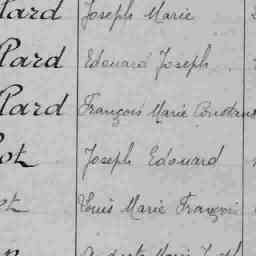 lard Joseph Marie
lard Edouard Joseph
lard François Marie Constant
ot Joseph Edouard
ot Louis Marie François
Marie